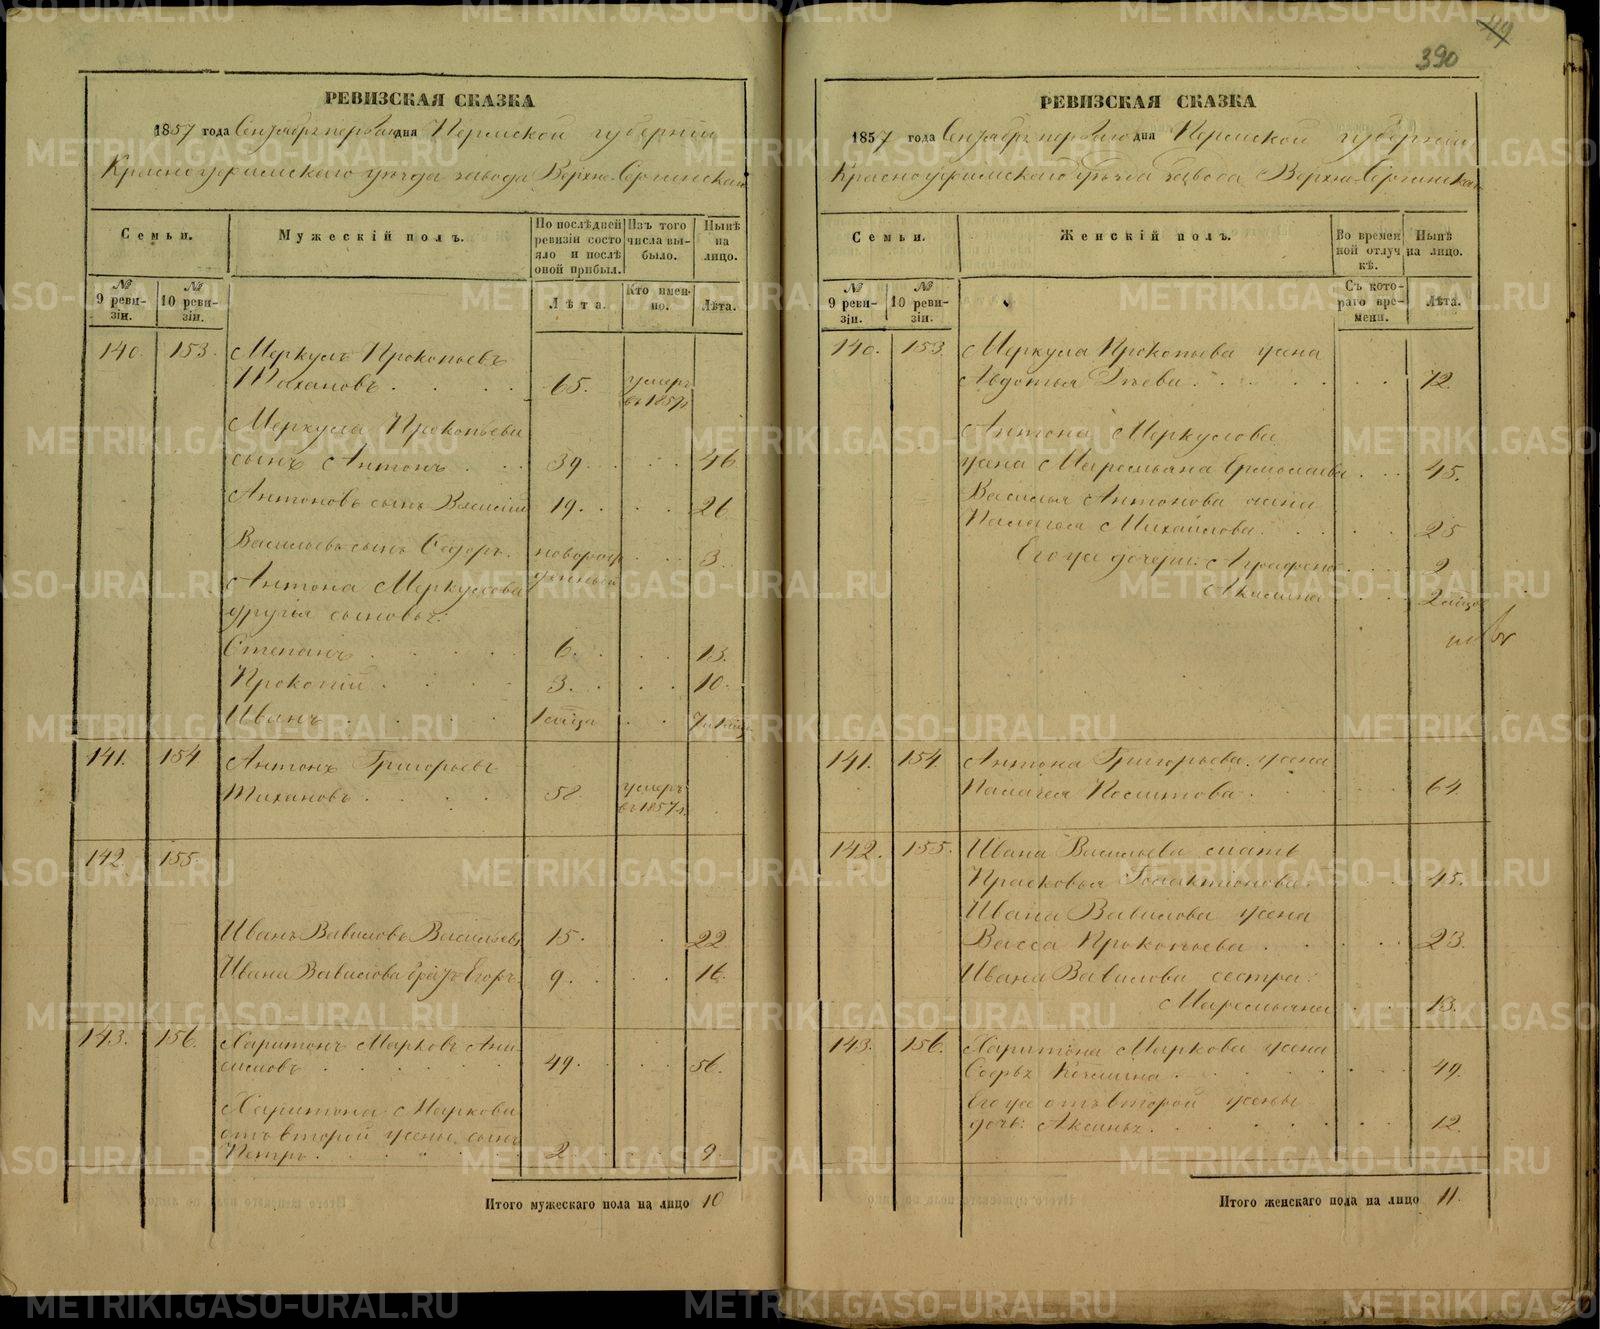 49
390
РЕВИЗСКАЯ СКАЗКА
1857 года Сентября перваго дня Пермской губерніи
Красноуфимскаго уѣзда завода Верхне-Сергинскаго
Семьи.
Мужескій полъ.
По послѣдней ревизіи состояло и послѣ оной прибыл.
Изъ того числа выбыло.
Нынѣ на лицо.
№ 9 ревизіи.
№ 10 ревизіи.
Лѣта.
Кто именно.
Лѣта.
140. 153. Меркулъ Прокопьевъ
Тихановъ 65. умеръ въ 1857 г.
Меркула Прокопьева
сынъ Антонъ 39. 46
Антоновъ сынъ Василій 19. 26
Васильевъ сынъ Ѳедоръ. новорожденный 3.
Антона Меркулова
другія сыновья:
Степанъ 6. 13.
Прокопій 3. 10.
Иванъ
141. 154 Антонъ Григорьевъ
Тихановъ 58. умеръ въ 1857 г.
142. 155.
Иванъ Вавиловъ Васильевъ 15. 22
Ивана Вавилова братъ Егоръ 9. 16.
143. 156. Харитонъ Марковъ Анисимовъ 49. 56.
Харитона Маркова
отъ второй жены сынъ
Петръ 2 9.
Итого мужескаго пола на лицо 10
РЕВИЗСКАЯ СКАЗКА
1857 года Сентября перваго дня Пермской губерніи
Красноуфимскаго уѣзда завода Верхне-Сергинскаго
Семьи.
Женскій полъ.
Во временной отлучкѣ.
Нынѣ на лицо.
№ 9 ревизіи.
№ 10 ревизіи.
Съ котораго времени.
Лѣта.
140. 153. Меркула Прокопьева жена
Авдотья 72.
Антона Меркулова
жена Маремьяна Ермолаева 45.
Василья Антонова жена
Палагея Михайлова 25
Его же дочери: Аграфена 2
Акилина 2 мѣсяц.
141. 154. Антона Григорьева жена
Палагея 64.
142. 155. Ивана Васильева мать
Прасковья Галактионова 45.
Ивана Вавилова жена
Васса Прокопьева 23.
Ивана Вавилова сестра:
Маремьяна 13.
143. 156. Харитона Маркова жена
Софья 49.
Его же отъ второй жены
дочь: Аксинья 12.
Итого женскаго пола на лицо 11.
METRIKI.GASO-URAL.RU